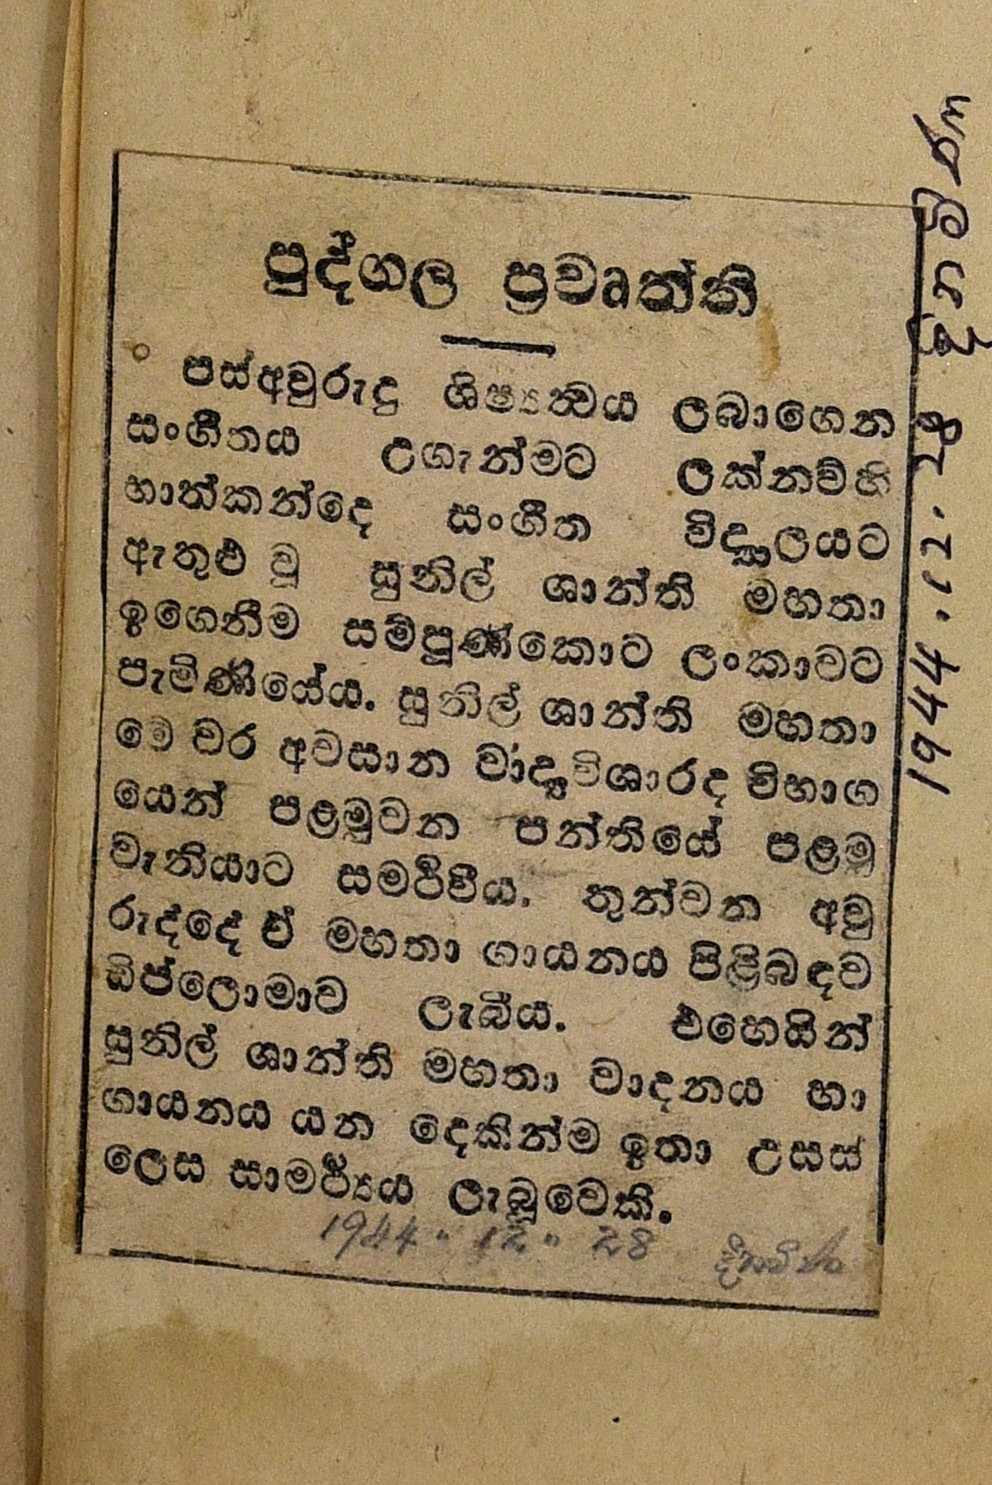 පුද්ගල ප්‍රවෘත්ති
පස්අවුරුදු ශිෂ්‍යත්‍වය ලබාගෙන
සංගීතය උගැන්මට ලක්නව්හි
භාත්කන්දෙ සංගීත විද්‍යාලයට
ඇතුළු වූ සුනිල් ශාන්ති මහතා
ඉගෙනීම සම්පූර්‍ණකොට ලංකාවට
පැමිණියේය. සුනිල් ශාන්ති මහතා
මෙ වර අවසාන වාද්‍යවිශාරද විභාග
යෙන් පළමුවන පන්තියේ පළමු
වැනියාට සමර්‍ථවීය. තුන්වන අවු
රුද්දේ ඒ මහතා ගායනය පිළිබඳව
ඩිප්ලොමාව ලැබීය. එහෙයින්
සුනිල් ශාන්ති මහතා වාදනය හා
ගායනය යන දෙකින්ම ඉතා උසස්
ලෙස සාමර්‍ථ්‍යය ලැබූවෙකි.
1944.. 12.. 28 දිනමිණ
1944.12.28 දිනමිණ